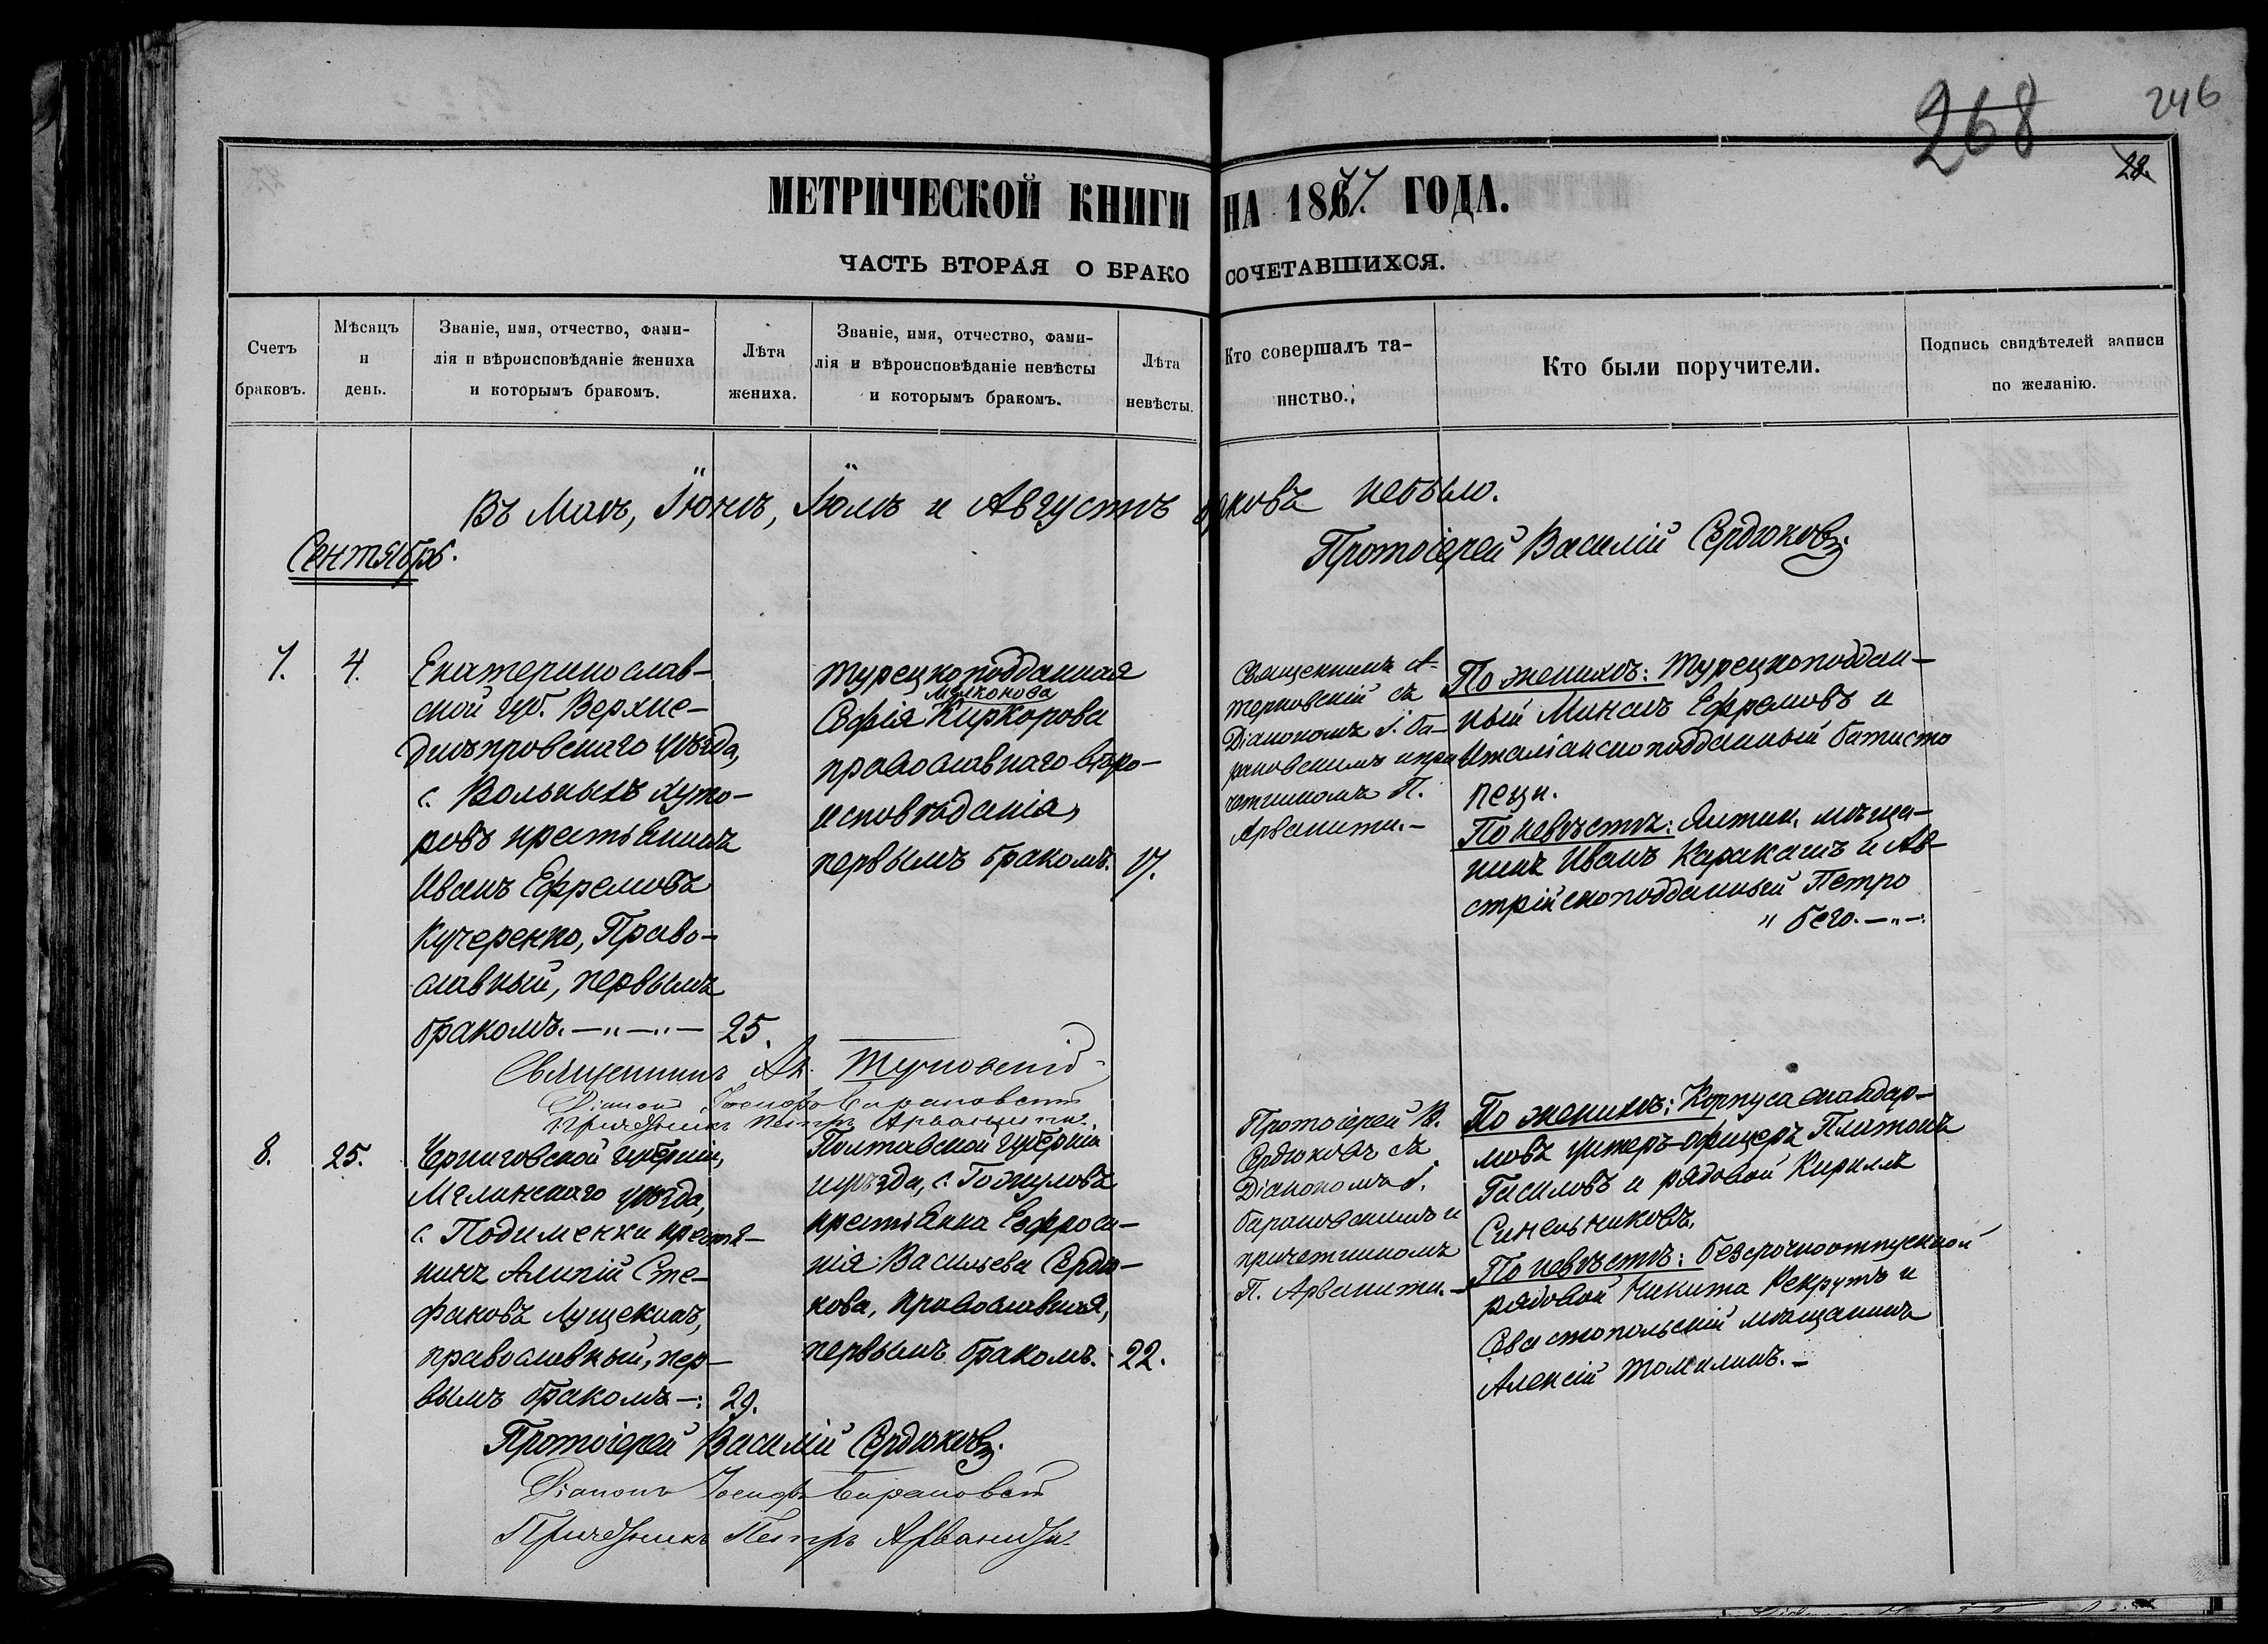 268
246
28.
МЕТРИЧЕСКОЙ КНИГИ НА 1877. ГОДА.
ЧАСТЬ ВТОРАЯ О БРАКОСОЧЕТАВШИХСЯ.
Счетъ
браковъ.
Мѣсяцъ
и
день.
Званіе, имя, отчество, фами-
лія и вѣроисповѣданіе жениха
и которымъ бракомъ.
Лѣта
жениха.
Званіе, имя, отчество, фами-
лія и вѣроисповѣданіе невѣсты
и которымъ бракомъ.
Лѣта
невѣсты.
Кто совершалъ та-
инство.
Кто были поручители.
Подпись свидѣтелей записи
по желанію.
Въ Маѣ, Іюнѣ, Іюлѣ и Августѣ браковъ небыло.
Протоіерей Василій Сердюковъ.
Сентябрь.
7.
4.
Екатеринослав-
ской губ. Верхне-
днѣпровскаго уѣзда,
с. Вольныхъ хуто-
ровъ крестьянинъ
Иванъ Ефремовъ
Кучеренко, Право-
славный, первымъ
бракомъ.—"—"—
25.
турецкоподданная
Софія Киркорова
православнаго вѣро-
исповѣданія,
первымъ бракомъ.
17.
Священникъ А.
Терновскій съ
Діакономъ І. Ба-
рановскимъ и при-
четникомъ П.
Арванити.—
По женихѣ: Турецкоподдан-
ный Минасъ Ефремовъ и
Италіанскоподданный Батисто
Пеци.
По невѣстѣ: Ялтин. мѣща-
нинъ Иванъ Каракашъ и Ав-
стрійскоподданный Петро
" Бего.—"—.
Священникъ Ал. Терновскій
Діаконъ Іосифъ Барановскій
Причетникъ Петръ Арванити.
8.
25.
Черниговской губерніи,
Мглинскаго уѣзда,
с. Подименки крестья-
нинъ Алипій Сте-
фановъ Лущекинъ,
православный, пер-
вымъ бракомъ—:
29.
Полтавской губерніи
и уѣзда, с. Гожуловъ
крестьянка Евфроси-
нія Васильева Сердю-
кова, православная,
первымъ бракомъ.
22.
Протоіерей В.
Сердюковъ съ
Діакономъ І.
Барановскимъ и
причетникомъ
П. Арванити.—
По женихѣ: Корпуса жандар-
мовъ унтеръ-офицеръ Платонъ
Гасиловъ и рядовой Кириллъ
Синельниковъ.
По невѣстѣ: безсрочноотпускной
рядовой Никита Рекрутъ и
Севастопольскій мѣщанинъ
Алексій Томилинъ.—
Протоіерей Василій Сердюковъ.
Діаконъ Іосифъ Барановскій
Причетникъ Петръ Арванити.